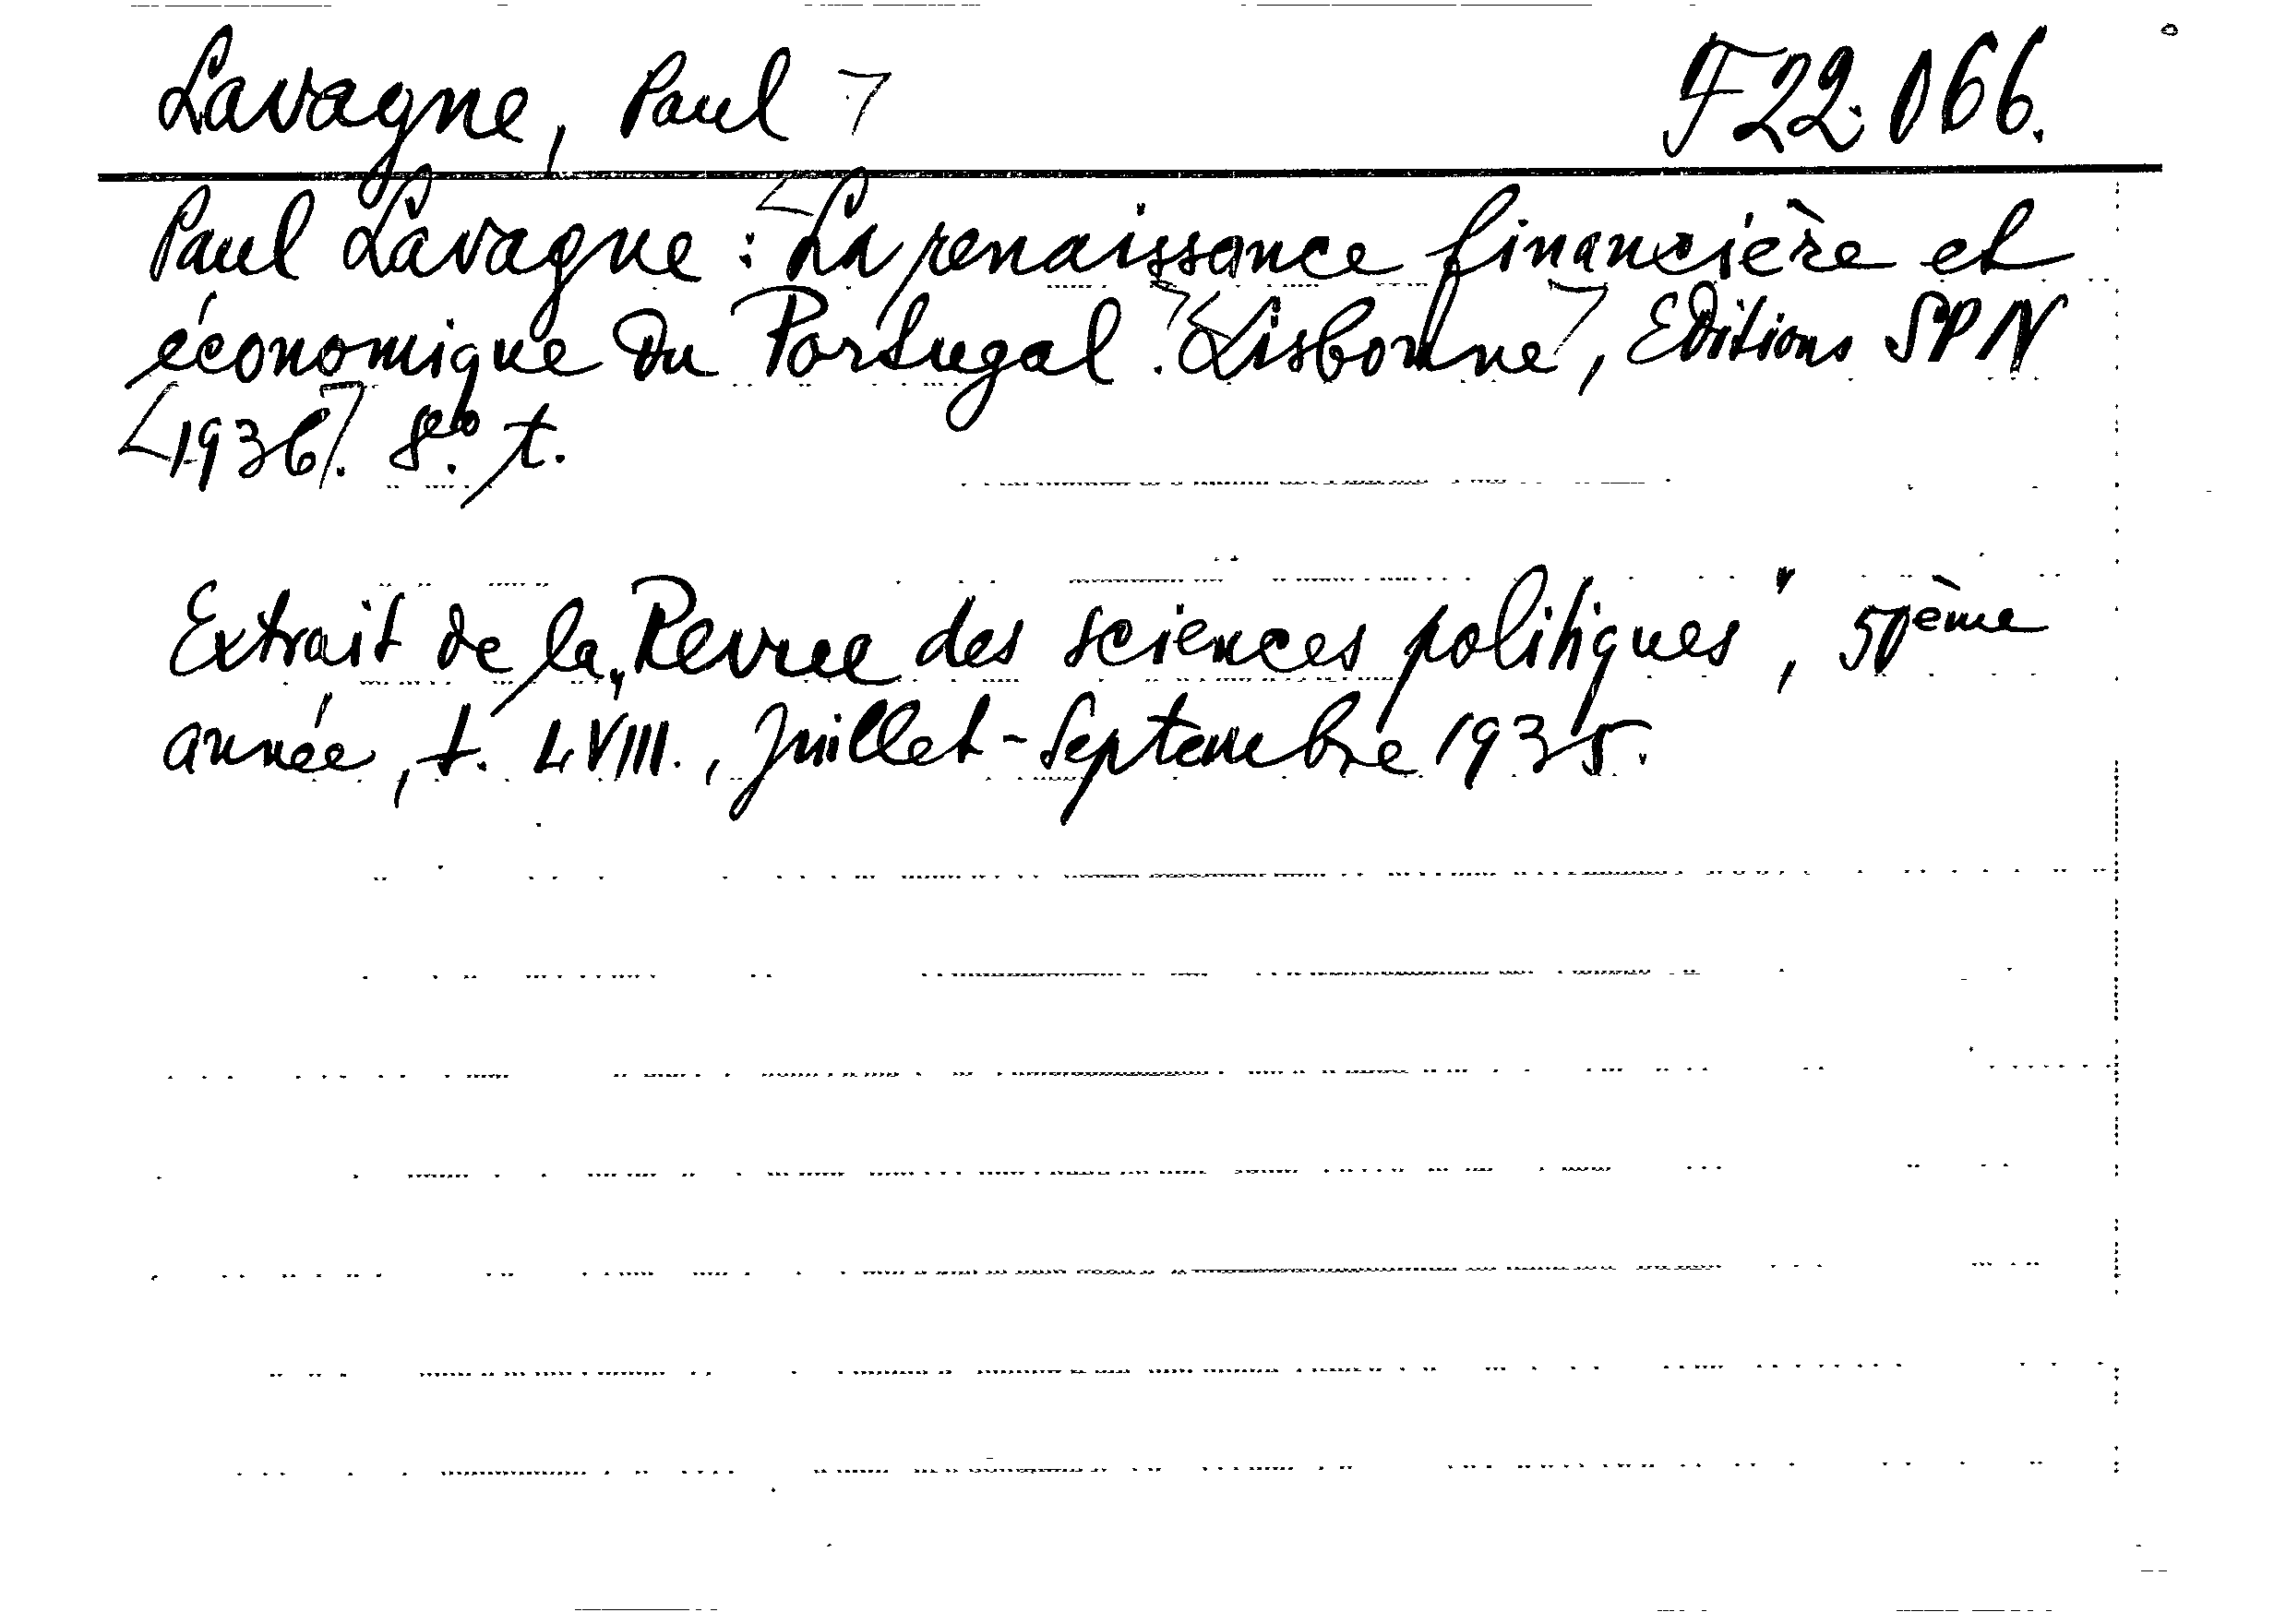 Lavagne, Paul ⌉ F22.066.
Paul Lavagne : La renaissance financière et
économique du Portugal. Lisbonne, Editions SPN
1936. 8° t.
Extrait de la „Revue des sciences politiques", 50ème
année, t. LVIII., Juillet-Septembre 1935.